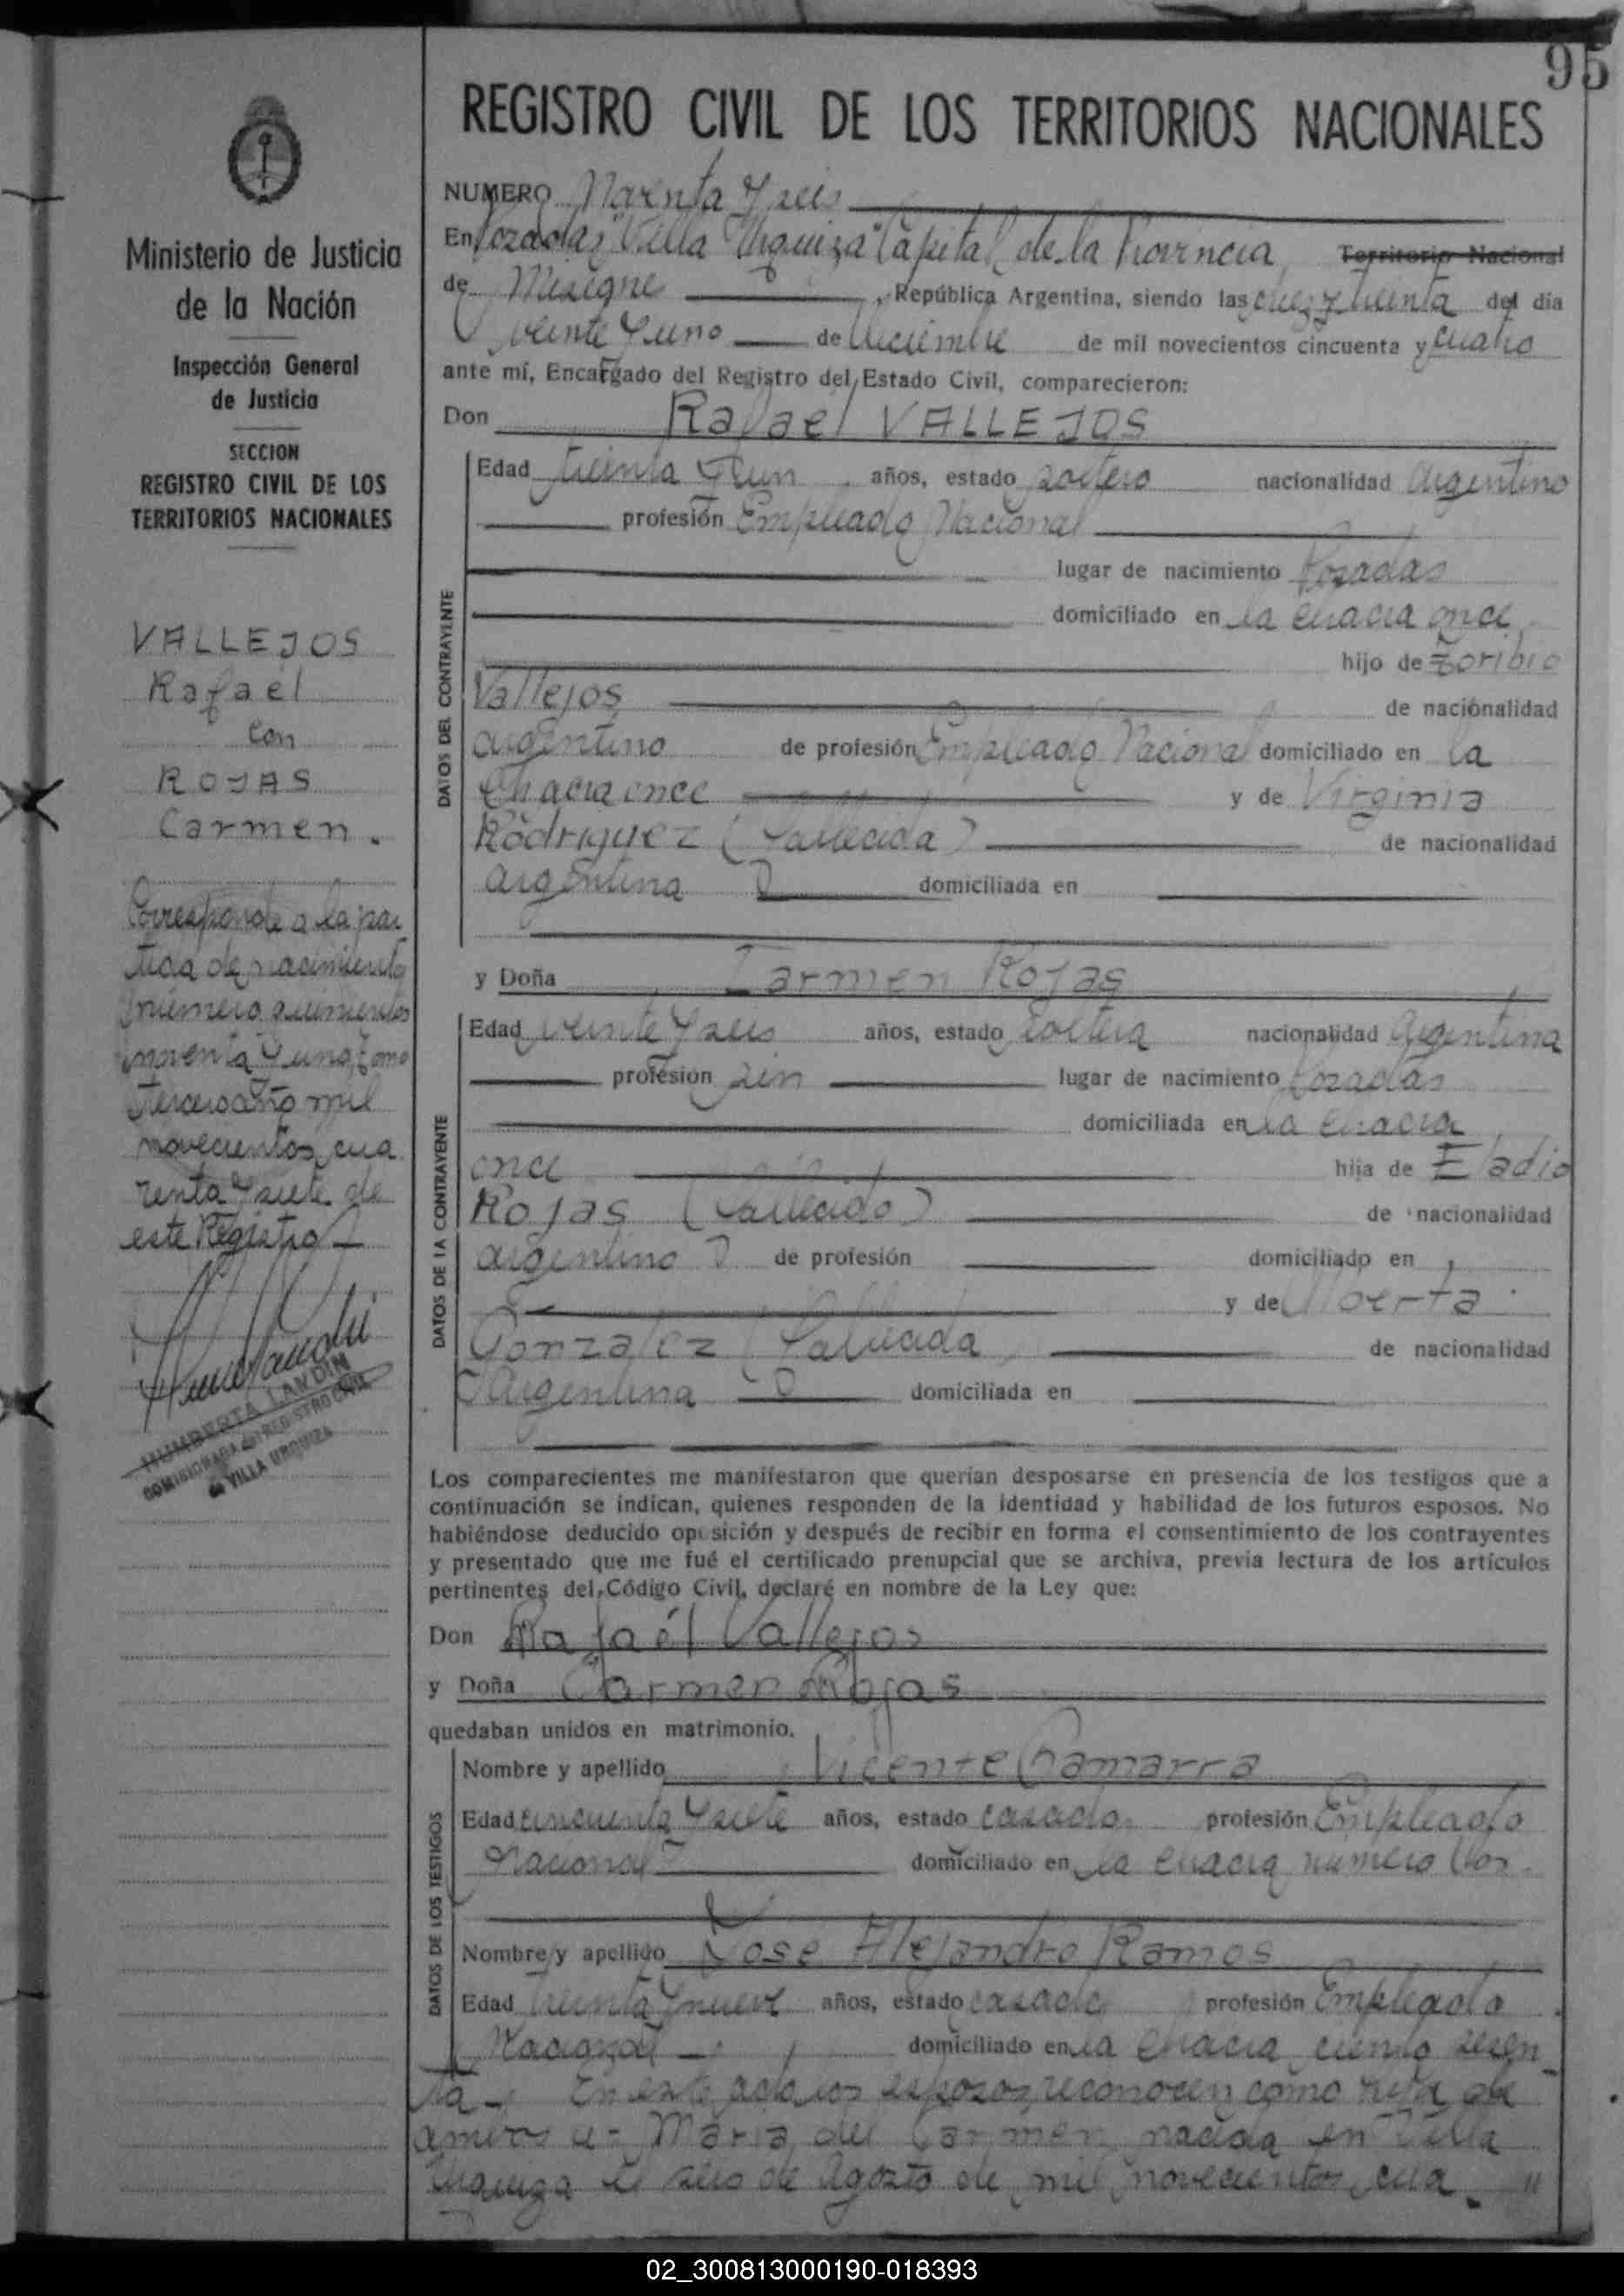 95
REGISTRO CIVIL DE LOS TERRITORIOS NACIONALES
Ministerio de Justicia
de la Nación
Inspección General
de Justicia
SECCION
REGISTRO CIVIL DE LOS
TERRITORIOS NACIONALES
VALLEJOS
Rafael
con
ROJAS
Carmen.
Corresponde a la par
tida de nacimiento
número quinientos
noventa y uno, tomo
Tercero año mil
novecientos cua
renta y siete de
este Registro
HUMBERTA LANDIN
COMISIONADA de REGISTRO CIVIL
de VILLA URQUIZA
NUMERO Noventa y seis
En Posadas "Villa Urquiza" Capital de la Provincia Territorio Nacional
de Misiones, República Argentina, siendo las diez y treinta del día
veinte y uno de Diciembre de mil novecientos cincuenta y cuatro
ante mí, Encargado del Registro del Estado Civil, comparecieron:
Don Rafael VALLEJOS
DATOS DEL CONTRAYENTE
Edad treinta y un años, estado soltero nacionalidad Argentino
profesión Empleado Nacional
lugar de nacimiento Posadas
domiciliado en la chacra once
hijo de Toribio
Vallejos de nacionalidad
argentino de profesión Empleado Nacional domiciliado en la
Chacra once y de Virginia
Rodriguez (fallecida) de nacionalidad
argentina domiciliada en
y Doña Carmen Rojas
DATOS DE LA CONTRAYENTE
Edad veinte y seis años, estado soltera nacionalidad Argentina
profesión sin lugar de nacimiento Posadas
domiciliada en la chacra
once hija de Eladio
Rojas (fallecido) de nacionalidad
argentino de profesión domiciliado en
y de
Gonzalez fallecida de nacionalidad
Argentina domiciliada en
Los comparecientes me manifestaron que querían desposarse en presencia de los testigos que a
continuación se indican, quienes responden de la identidad y habilidad de los futuros esposos. No
habiéndose deducido oposición y después de recibir en forma el consentimiento de los contrayentes
y presentado que me fué el certificado prenupcial que se archiva, previa lectura de los artículos
pertinentes del Código Civil, declaré en nombre de la Ley que:
Don Rafaél Vallejos
y Doña Carmen Rojas
quedaban unidos en matrimonio.
DATOS DE LOS TESTIGOS
Nombre y apellido Vicente Gamarra
Edad cincuenta y siete años, estado casado profesión Empleado
Nacional domiciliado en la chacra número dos
Nombre y apellido José Alejandro Ramos
Edad treinta y nueve años, estado casado profesión Empleado
Nacional domiciliado en la chacra ciento sesen
ta - En este acto los esposos reconocen como hija de
ambos a - Maria del Carmen nacida en Villa
Urquiza el seis de Agosto de mil novecientos cua
02_300813000190-018393